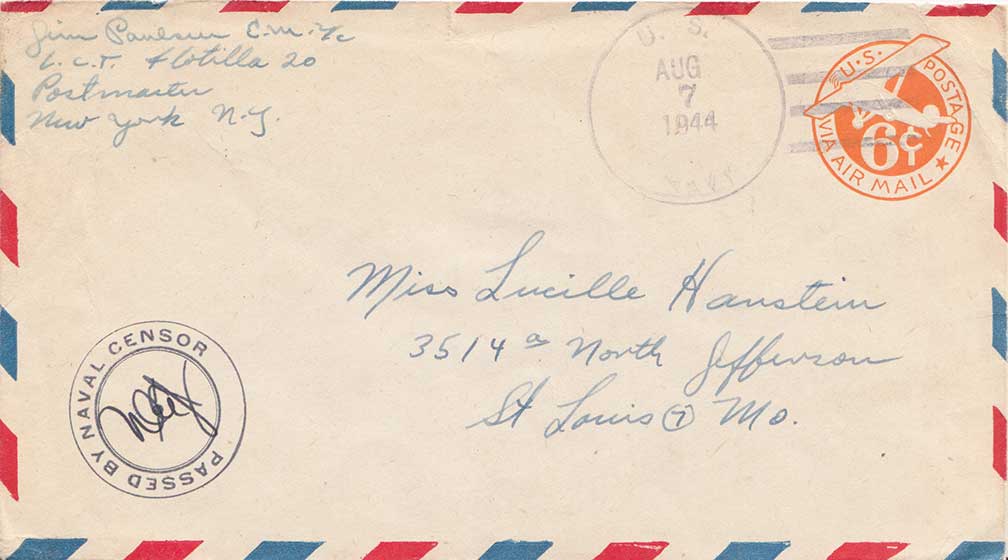 Jim Paulsen E.M. 2/c
L.C.T. Flotilla 20
Postmaster
New York N.Y.
U. S.
AUG
7
1944
NAVY
U.S. POSTAGE
6¢
VIA AIR MAIL
Miss Lucille Hanstein
3514 a North Jefferson
St Louis (7) Mo.
PASSED BY NAVAL CENSOR